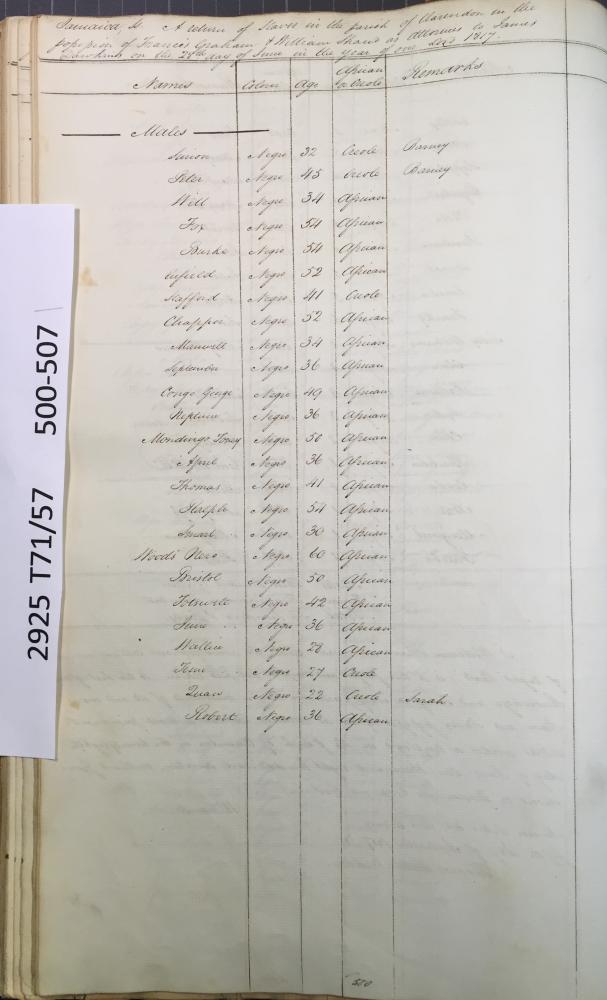 Jamaica, ss A return of Slaves in the parish of Clarendon in the
possession of Francis Graham & William Shand as Attornies to James
Dawkins on the 28th day of June in the year of our Lord 1817.
Names Colour Age African or Creole Remarks
Males
Simon Negro 32 Creole Barney
Peter Negro 45 Creole Barney
Will Negro 34 African
Fox Negro 54 African
Burke Negro 54 African
Enfield Negro 52 African
Stafford Negro 41 Creole
Negro 52 African
Maxwell Negro 34 African
September Negro 36 African
Congo George Negro 49 African
Neptune Negro 36 African
Mondingo Toney Negro 50 African
April Negro 36 African
Thomas Negro 41 African
Negro 54 African
Smart Negro 30 African
Woods Nero Negro 60 African
Bristol Negro 50 African
Negro 42 African
June Negro 36 African
Negro 28 African
Negro 27 Creole
Quaw Negro 22 Creole Sarah
Robert Negro 36 African
500
2925 T71/57 500-507